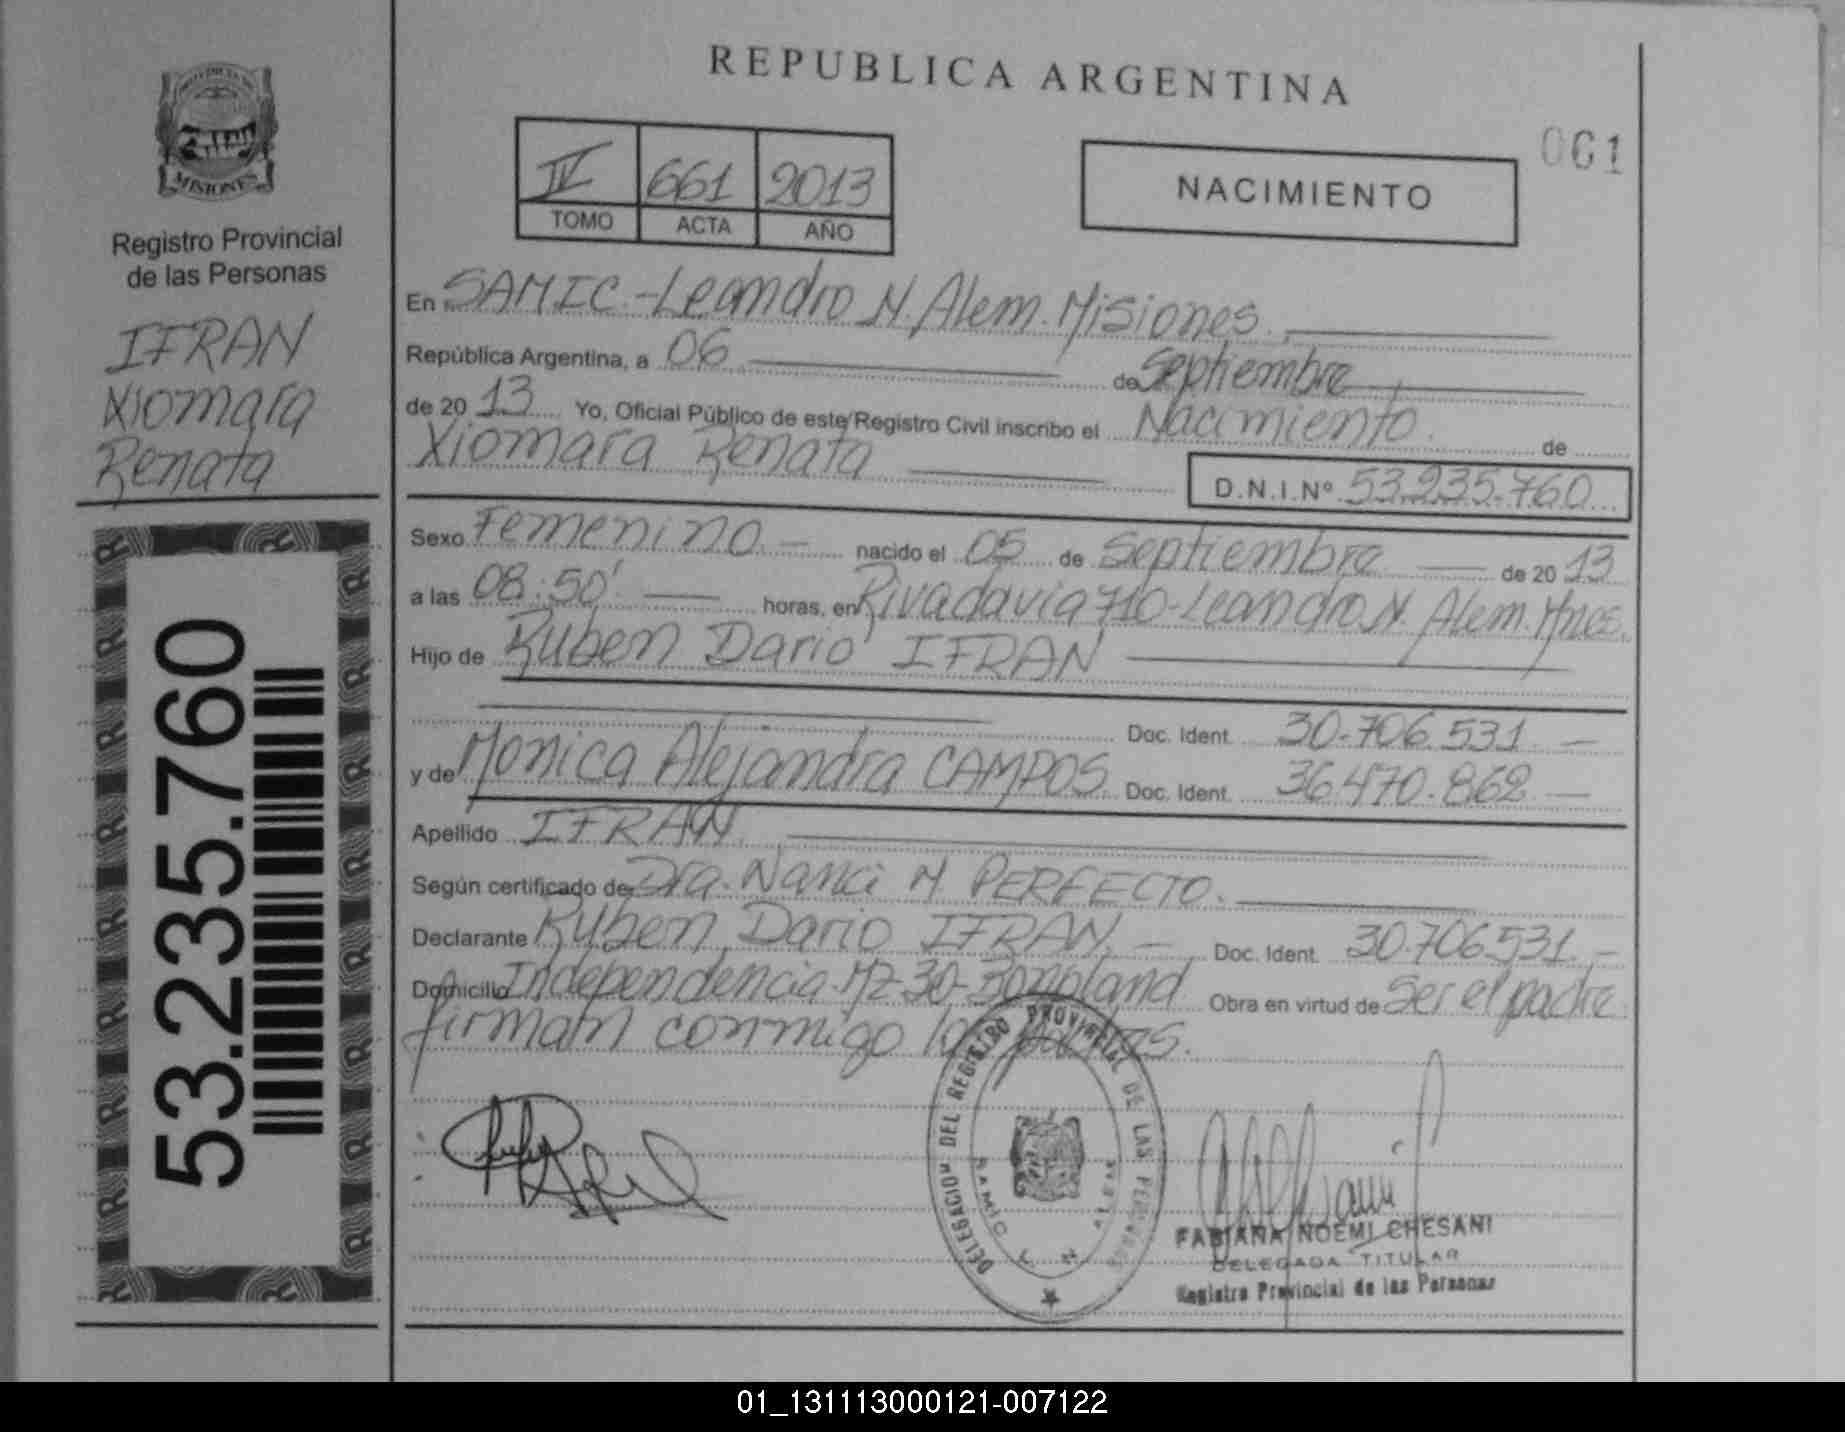 REPUBLICA ARGENTINA
061
PROVINCIA DE
MISIONES
Registro Provincial
de las Personas
IFRAN
Xiomara
Renata
53.235.760
IV 661 2013
TOMO ACTA AÑO
NACIMIENTO
En SAMIC.-Leandro N. Alem. Misiones.
República Argentina, a 06 de Septiembre
de 20 13 Yo, Oficial Público de este Registro Civil inscribo el Nacimiento. de
Xiomara Renata D.N.I.Nº 53.235.760
Sexo Femenino.- nacido el 05 de Septiembre de 20 13
a las 08:50' horas, en Rivadavia 710-Leandro N. Alem. Mnes.
Hijo de Ruben Dario IFRAN
Doc. Ident. 30.706.531.-
y de Monica Alejandra CAMPOS. Doc. Ident. 36.470.862.-
Apellido IFRAN.
Según certificado de Dra. Nanci M. PERFECTO.
Declarante Ruben Dario IFRAN.- Doc. Ident. 30.706.531.-
Domicilio Independencia-Mz-30- Obra en virtud de Ser el padre.
firman conmigo los padres.
DELEGACION DEL REGISTRO PROVINCIAL DE LAS PERSONAS
SAMIC L N ALEM
FABIANA NOEMI CHESANI
DELEGADA TITULAR
Registro Provincial de las Personas
01_131113000121-007122